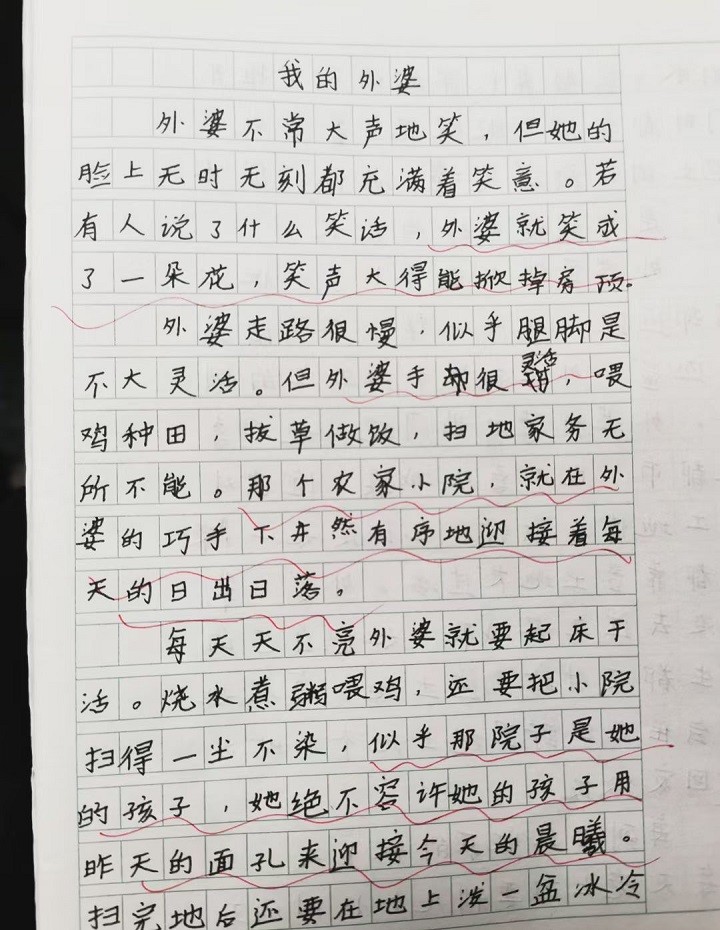 我的外婆
外婆不常大声地笑，但她的
脸上无时无刻都充满着笑意。若
有人说了什么笑话，外婆就笑成
了一朵花，笑声大得能掀掉房顶。
外婆走路很慢，似乎腿脚是
不大灵活。但外婆手却很灵活，喂
鸡种田，拔草做饭，扫地家务无
所不能。那个农家小院，就在外
婆的巧手下井然有序地迎接着每
天的日出日落。
每天天不亮外婆就要起床干
活。烧水煮粥喂鸡，还要把小院
扫得一尘不染，似乎那院子是她
的孩子，她绝不容许她的孩子用
昨天的面孔来迎接今天的晨曦。
扫完地后还要在地上泼一盆冰冷